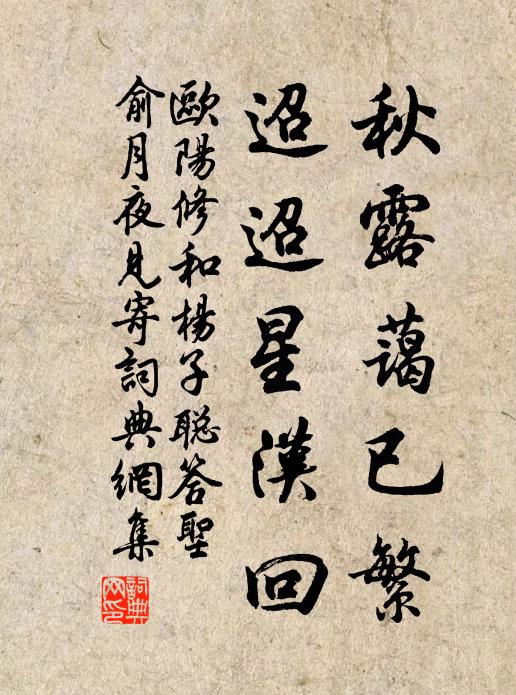 秋露藹已繁
迢迢星漢回
歐陽修和楊子聪答聖
俞月夜見寄詞典網集
詞典
网印